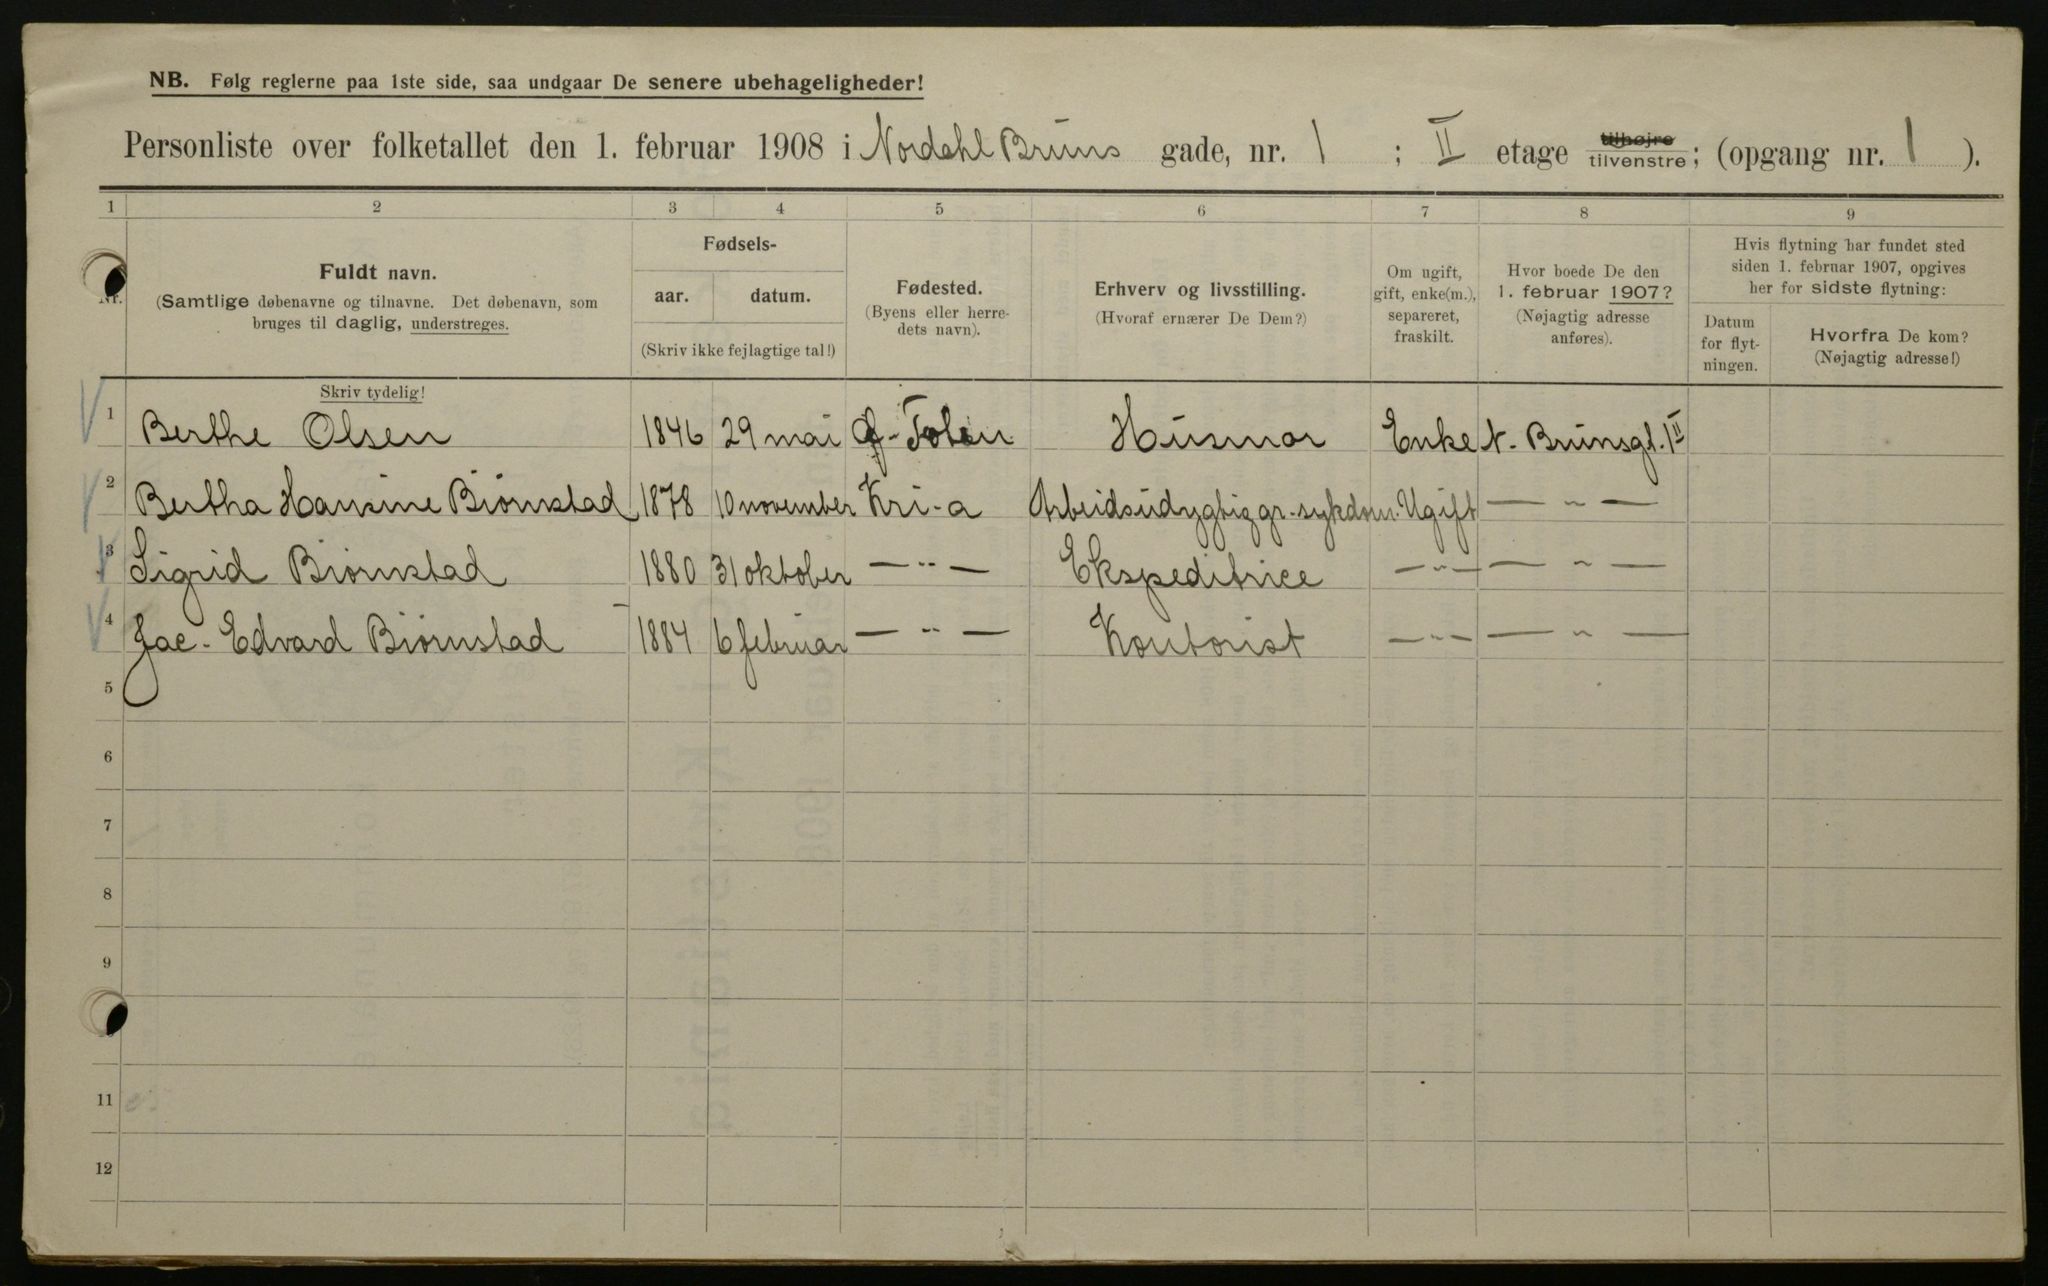 NB. Følg reglerne paa 1ste side, saa undgaar De senere ubehageligheder!
Personliste over folketallet den 1. februar 1908 i Nordahl Bruns gade, nr. 1 ; II etage tilhøjre tilvenstre; (opgang nr. 1 ).
1 2 3 4 5 6 7 8 9
Nr.
Fuldt navn.
(Samtlige døbenavne og tilnavne. Det døbenavn, som
bruges til daglig, understreges.
Skriv tydelig!
Fødsels-
aar. datum.
(Skriv ikke fejlagtige tal!)
Fødested.
(Byens eller herre-
dets navn).
Erhverv og livsstilling.
(Hvoraf ernærer De Dem?)
Om ugift,
gift, enke(m.),
separeret,
fraskilt.
Hvor boede De den
1. februar 1907?
(Nøjagtig adresse
anføres).
Hvis flytning har fundet sted
siden 1. februar 1907, opgives
her for sidste flytning:
Datum
for flyt-
ningen.
Hvorfra De kom?
(Nøjagtig adresse!)
1 Berthe Olsen 1846 29 mai Toten Husmor Enke N. Brunsgt. 1 II
2 Bertha Hansine Biørnstad 1878 10 november Kri-a Arbeidsudygtig gr. sykdom. Ugift — " —
3 Sigrid Biørnstad 1880 31 oktober — " — Ekspeditrice — " — — " —
4 Jac. Edvard Biørnstad 1884 6 februar — " — Kontorist — " — — " —
5
6
7
8
9
11
12